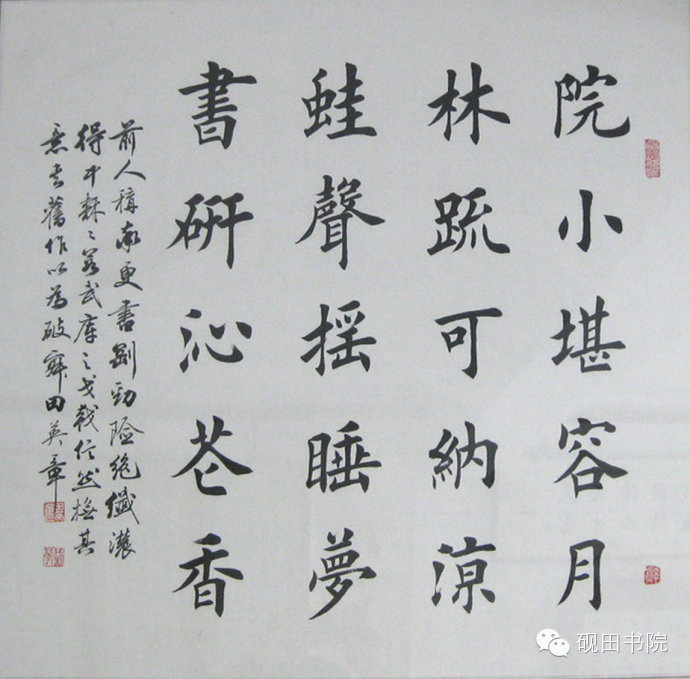 院小堪容月
林疏可納涼
蛙聲摇睡夢
書研沁花香
前人稱率更書剛勁險絕纖濃
得中森〻若武庫之戈戟信然撫其
意書舊作以為破寂田英章
砚田书院